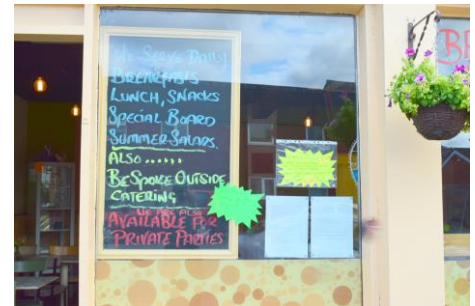 We Serve Daily
BREAKFASTS
LUNCH, SNACKS
SPECIAL BOARD
SUMMER SALADS.
ALSO ......
BESPOKE OUTSIDE
CATERING
WE ARE ALSO
AVAILABLE FOR
PRIVATE PARTIES